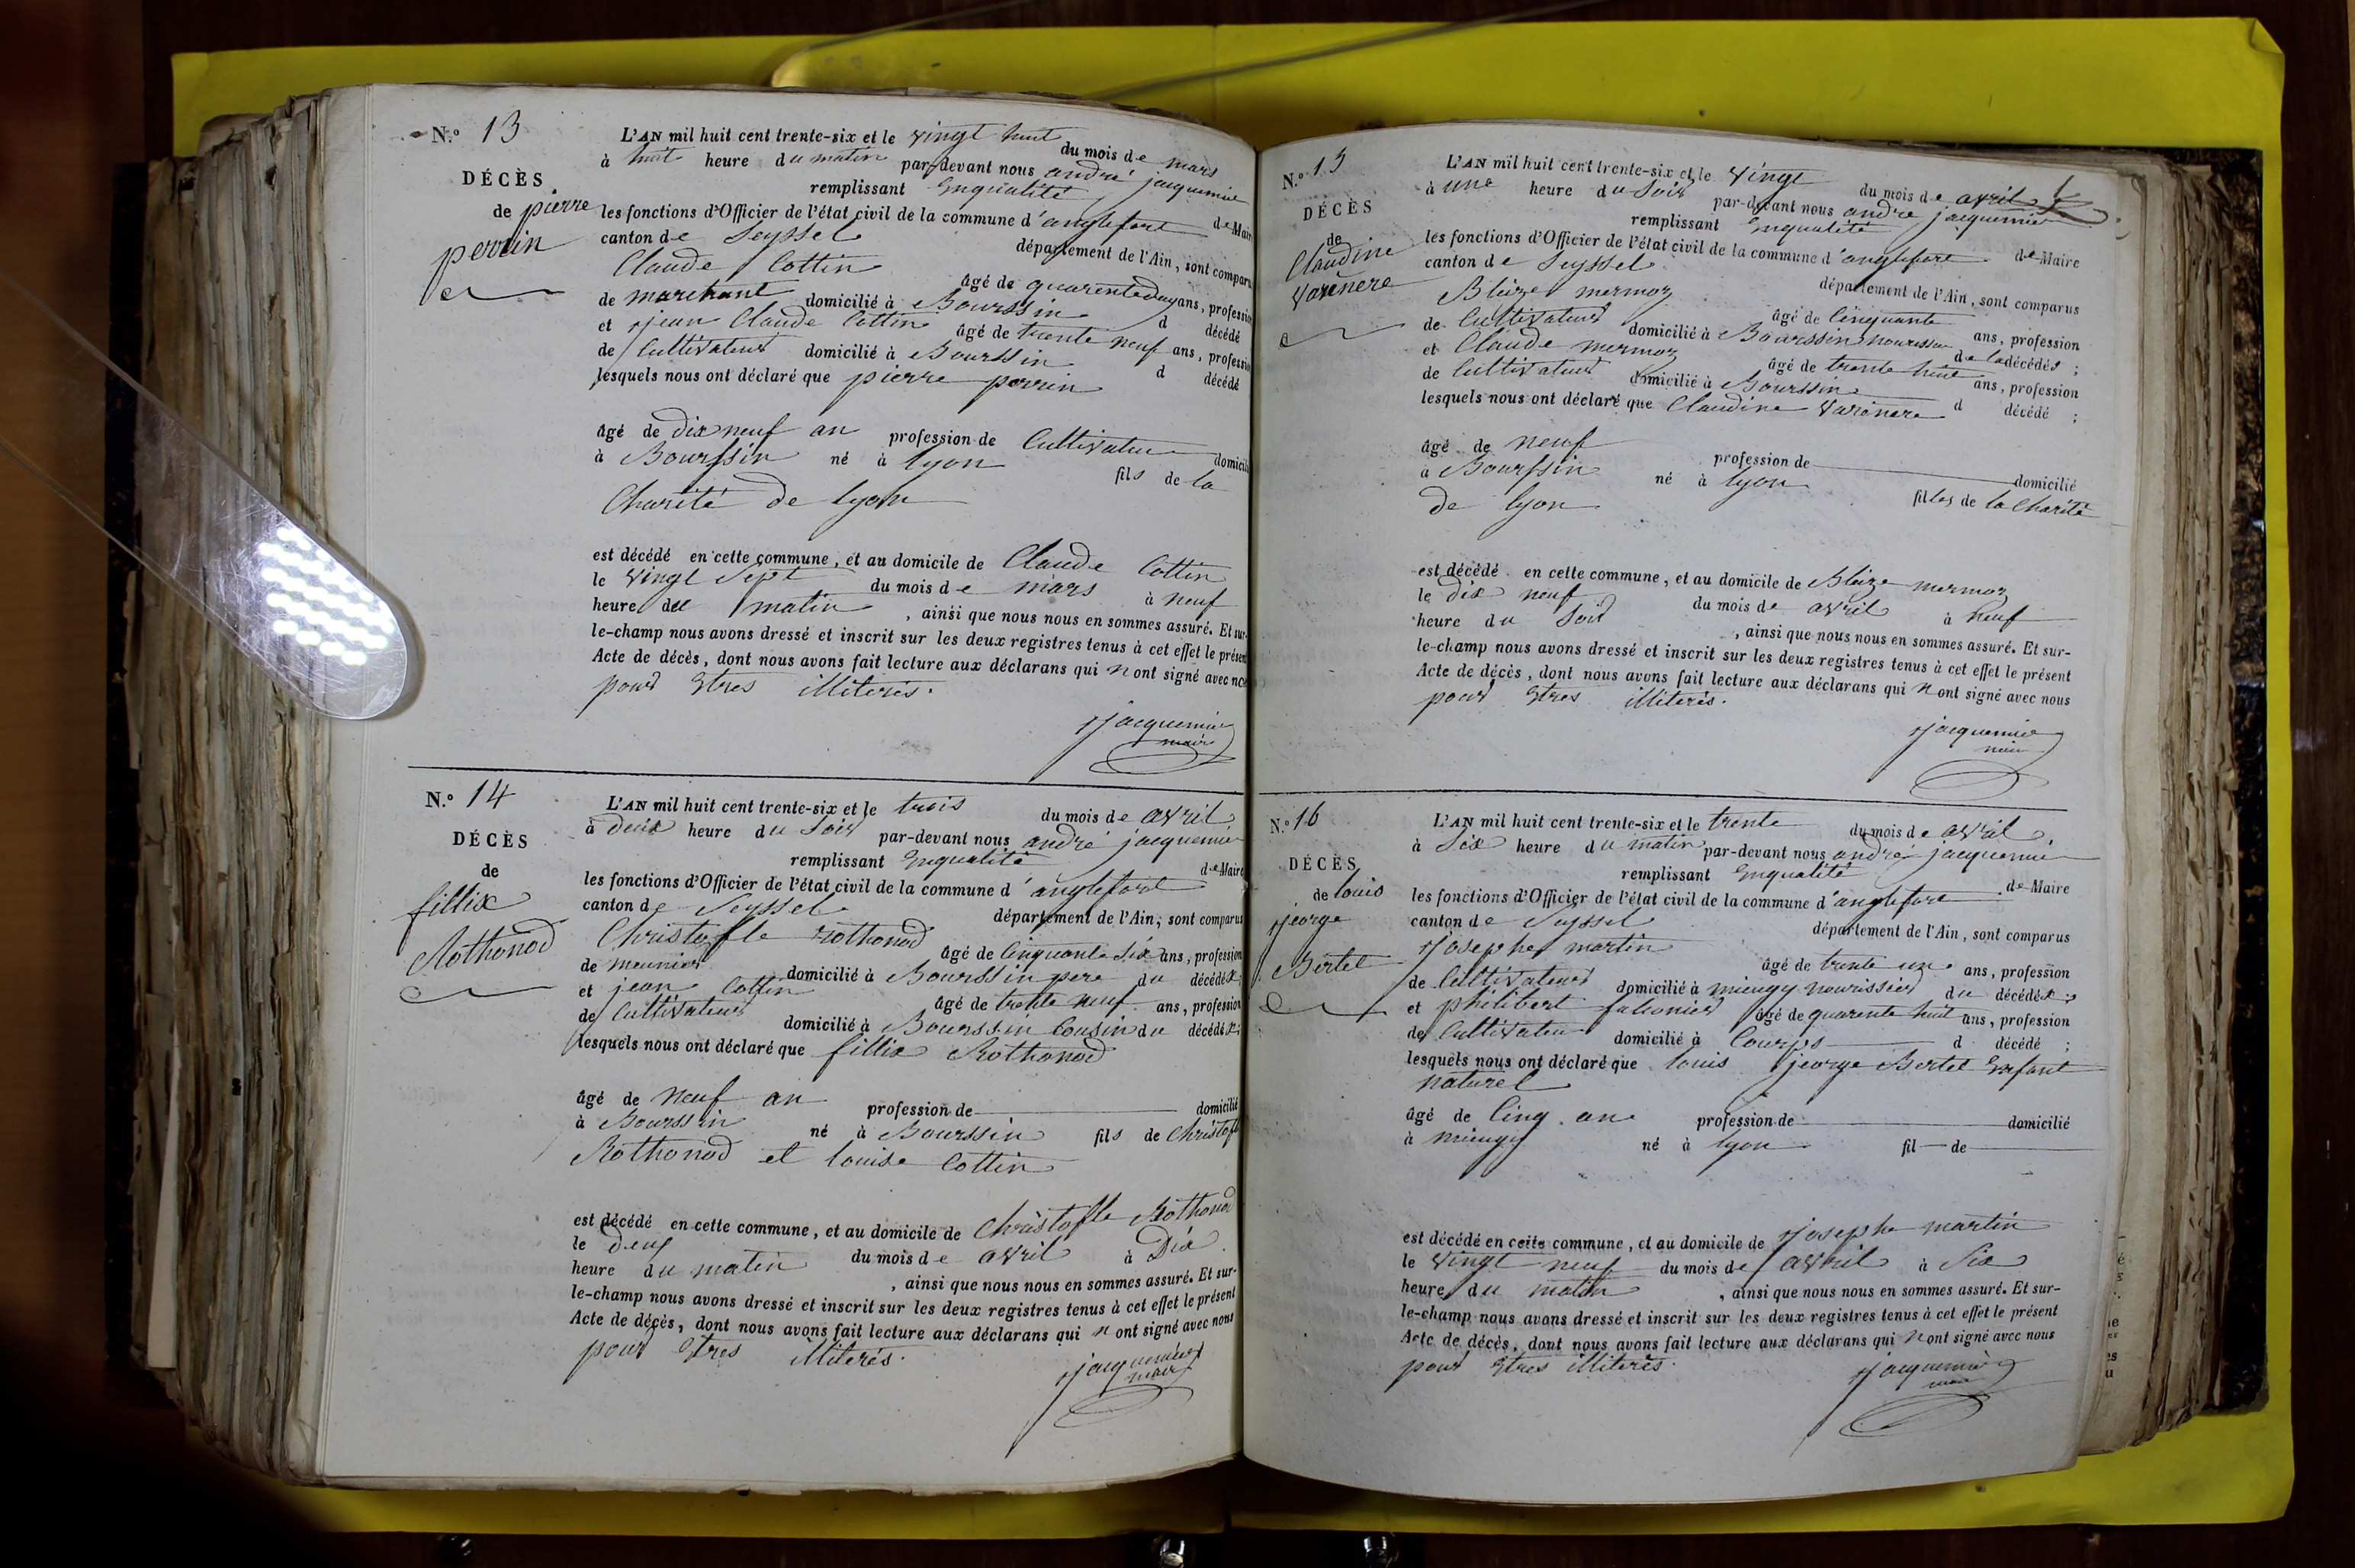 N.° 13
DÉCÈS
de pierre
perrin
L'AN mil huit cent trente-six et le vingt huit du mois de mars
à huit heure du matin par-devant nous andré jacquemier
remplissant Enqualité de Maire
les fonctions d'Officier de l'état civil de la commune d'anglefort
canton de Seyssel département de l'Ain, sont comparus
Claude Cottin âgé de quarente ans, profession
de marchant domicilié à Bourssin d décédé
et jean Claude Cottin âgé de trente neuf ans, profession
de Cultivateur domicilié à Bourssin d décédé
lesquels nous ont déclaré que pierre perrin
âgé de dix neuf an profession de Cultivateur domicilié
à Bourssin né à lyon fils de la
Charité de lyon
est décédé en cette commune, et au domicile de Claude Cottin
le vingt Sept du mois de mars à neuf
heure du matin, ainsi que nous nous en sommes assuré. Et sur-
le-champ nous avons dressé et inscrit sur les deux registres tenus à cet effet le présent
Acte de décès, dont nous avons fait lecture aux déclarans qui n'ont signé avec nous
pour Etres illiterés.
jacquemier
maire
N.° 14
DÉCÈS
de
fillix
Rothonod
L'AN mil huit cent trente-six et le trois du mois de avril
à deux heure du Soir par-devant nous andré jacquemier
remplissant Enqualité de Maire
les fonctions d'Officier de l'état civil de la commune d'anglefort
canton de Seyssel département de l'Ain, sont comparus
Christofle rothonod âgé de Cinquante Six ans, profession
de meunier domicilié à Bourssin pere du décédé;
et jean Cottin âgé de trente neuf ans, profession
de Cultivateur domicilié à Bourssin Cousin du décédé;
lesquels nous ont déclaré que fillix Rothonod
âgé de neuf an profession de domicilié
à Bourssin né à Bourssin fils de Christofle
Rothonod et louise Cottin
est décédé en cette commune, et au domicile de Christofle Rothonod
le deux du mois de avril à Dix
heure du matin, ainsi que nous nous en sommes assuré. Et sur-
le-champ nous avons dressé et inscrit sur les deux registres tenus à cet effet le présent
Acte de décès, dont nous avons fait lecture aux déclarans qui n'ont signé avec nous
pour Etres illiterés.
jacquemier
maire
N.° 15
DÉCÈS
de
Claudine
Varenere
L'AN mil huit cent trente-six et le vingt du mois de avril
à une heure du Soir par-devant nous andré jacquemier
remplissant Enqualité de Maire
les fonctions d'Officier de l'état civil de la commune d'anglefort
canton de Seyssel département de l'Ain, sont comparus
Blaize mermoz âgé de Cinquante ans, profession
de Cultivateur domicilié à Bourssin nourissier de la décédés;
et Claude mermoz âgé de trente huit ans, profession
de Cultivateur domicilié à Bourssin d décédé;
lesquels nous ont déclaré que Claudine Varenere
âgé de neuf profession de domicilié
à Bourssin né à lyon filles de la Charité
de lyon
est décédé en cette commune, et au domicile de Blaize mermoz
le dix neuf du mois de avril à neuf
heure du Soir, ainsi que nous nous en sommes assuré. Et sur-
le-champ nous avons dressé et inscrit sur les deux registres tenus à cet effet le présent
Acte de décès, dont nous avons fait lecture aux déclarans qui n'ont signé avec nous
pour Etres illiterés.
jacquemier
maire
N.° 16
DÉCÈS
de louis
jeorge
Bertel
L'AN mil huit cent trente-six et le trente du mois de avril
à Six heure du matin par-devant nous andré jacquemier
remplissant Enqualité de Maire
les fonctions d'Officier de l'état civil de la commune d'anglefort
canton de Seyssel département de l'Ain, sont comparus
josephe martin âgé de trente un ans, profession
de Cultivateur domicilié à mieugy nourissier du décédé;
et philibert falconier âgé de quarente huit ans, profession
de Cultivateur domicilié à Courps d décédé;
lesquels nous ont déclaré que louis jeorge Bertel Enfant
naturel
âgé de Cinq an profession de domicilié
à mieugy né à lyon fil de
est décédé en cette commune, et au domicile de josephe martin
le vingt neuf du mois de avril à Six
heure du matin, ainsi que nous nous en sommes assuré. Et sur-
le-champ nous avons dressé et inscrit sur les deux registres tenus à cet effet le présent
Acte de décès, dont nous avons fait lecture aux déclarans qui n'ont signé avec nous
pour Etres illiterés.
jacquemier
maire